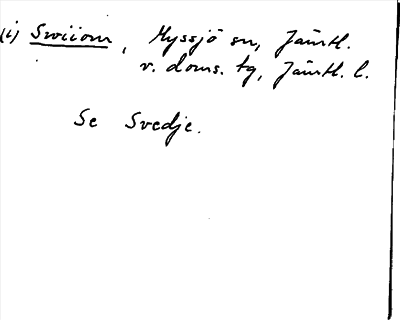 (i) Swiiom, Hyssjö sn, Jämtl.
v. doms. tg, Jämtl. l.
Se Svedje.